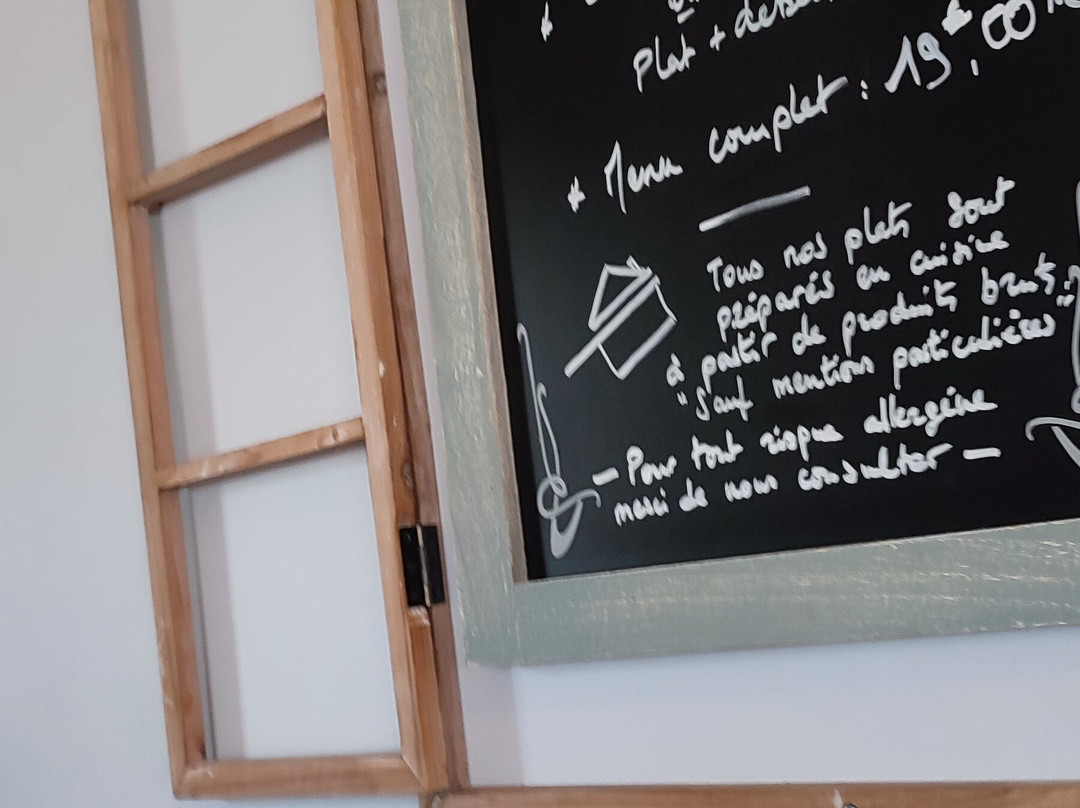 *
plat + dessert
* Menu complet : 19€,00
Tous nos plats sont
préparés en cuisine
à partir de produits bruts,
"sauf mentions particulières"
— Pour tout risque allergène
merci de nous consulter —